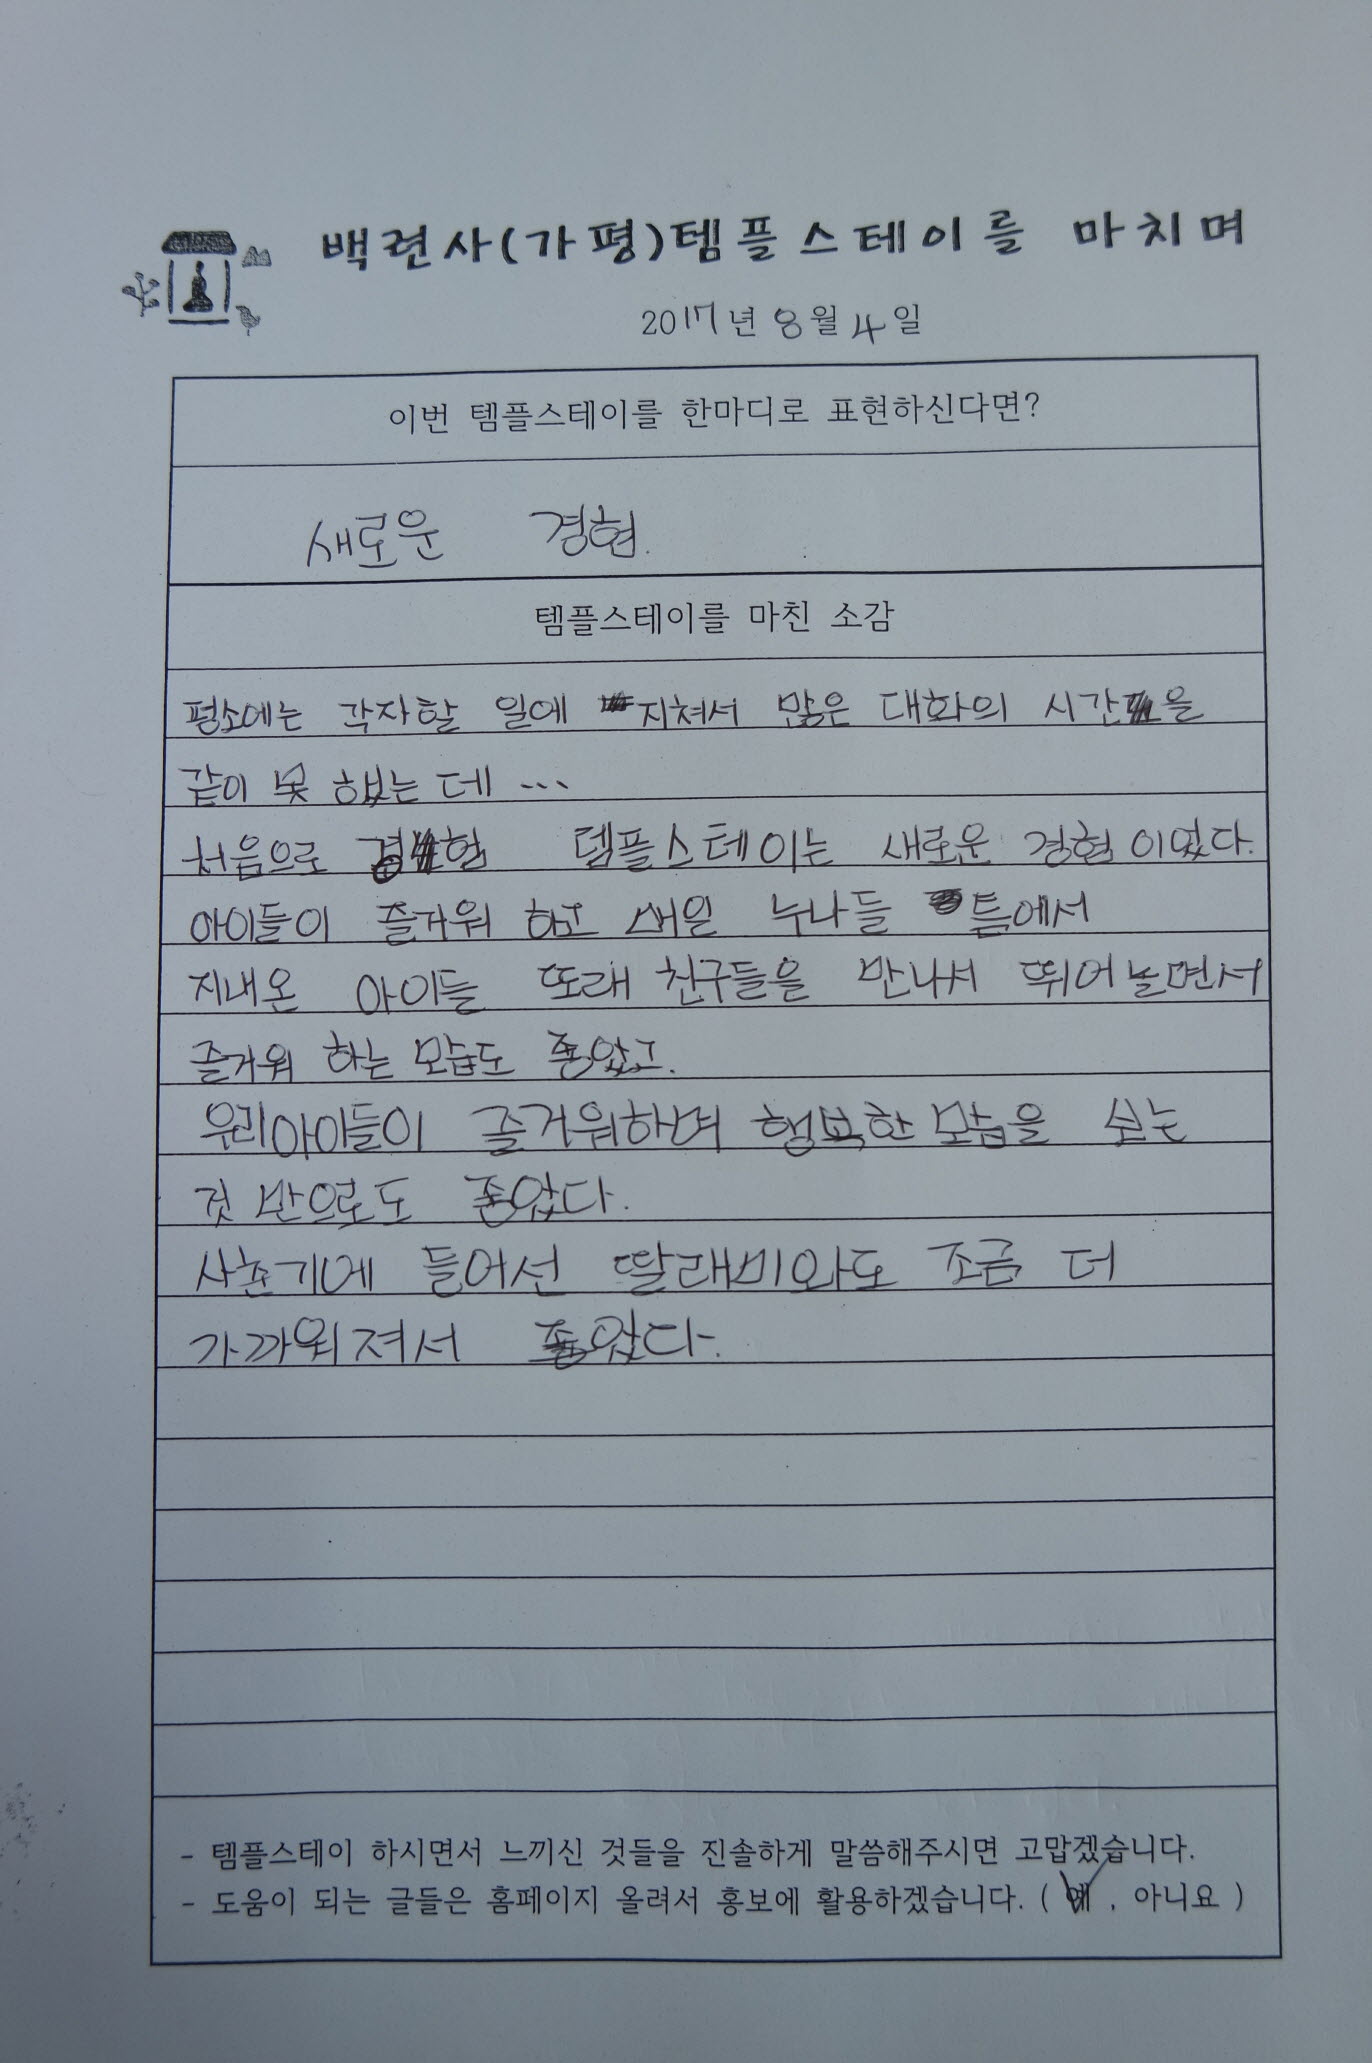 백련사(가평)템플스테이를 마치며
2017년 8월 4일
이번 템플스테이를 한마디로 표현하신다면?
새로운 경험.
템플스테이를 마친 소감
평소에는 각자할 일에 지쳐서 많은 대화의 시간을
같이 못 했는 데 ...
처음으로 경험 템플스테이는 새로운 경험이었다.
아이들이 즐거워 하고 누나들 틈에서
지내온 아이들 또래 친구들을 만나서 뛰어놀면서
즐거워 하는 모습도 좋았고.
우리아이들이 즐거워하며 행복한 모습을 보는
것 만으로도 좋았다.
사춘기에 들어선 딸래미와도 조금 더
가까워져서 좋았다.
- 템플스테이 하시면서 느끼신 것들을 진솔하게 말씀해주시면 고맙겠습니다.
- 도움이 되는 글들은 홈페이지 올려서 홍보에 활용하겠습니다. ( 예 , 아니요 )